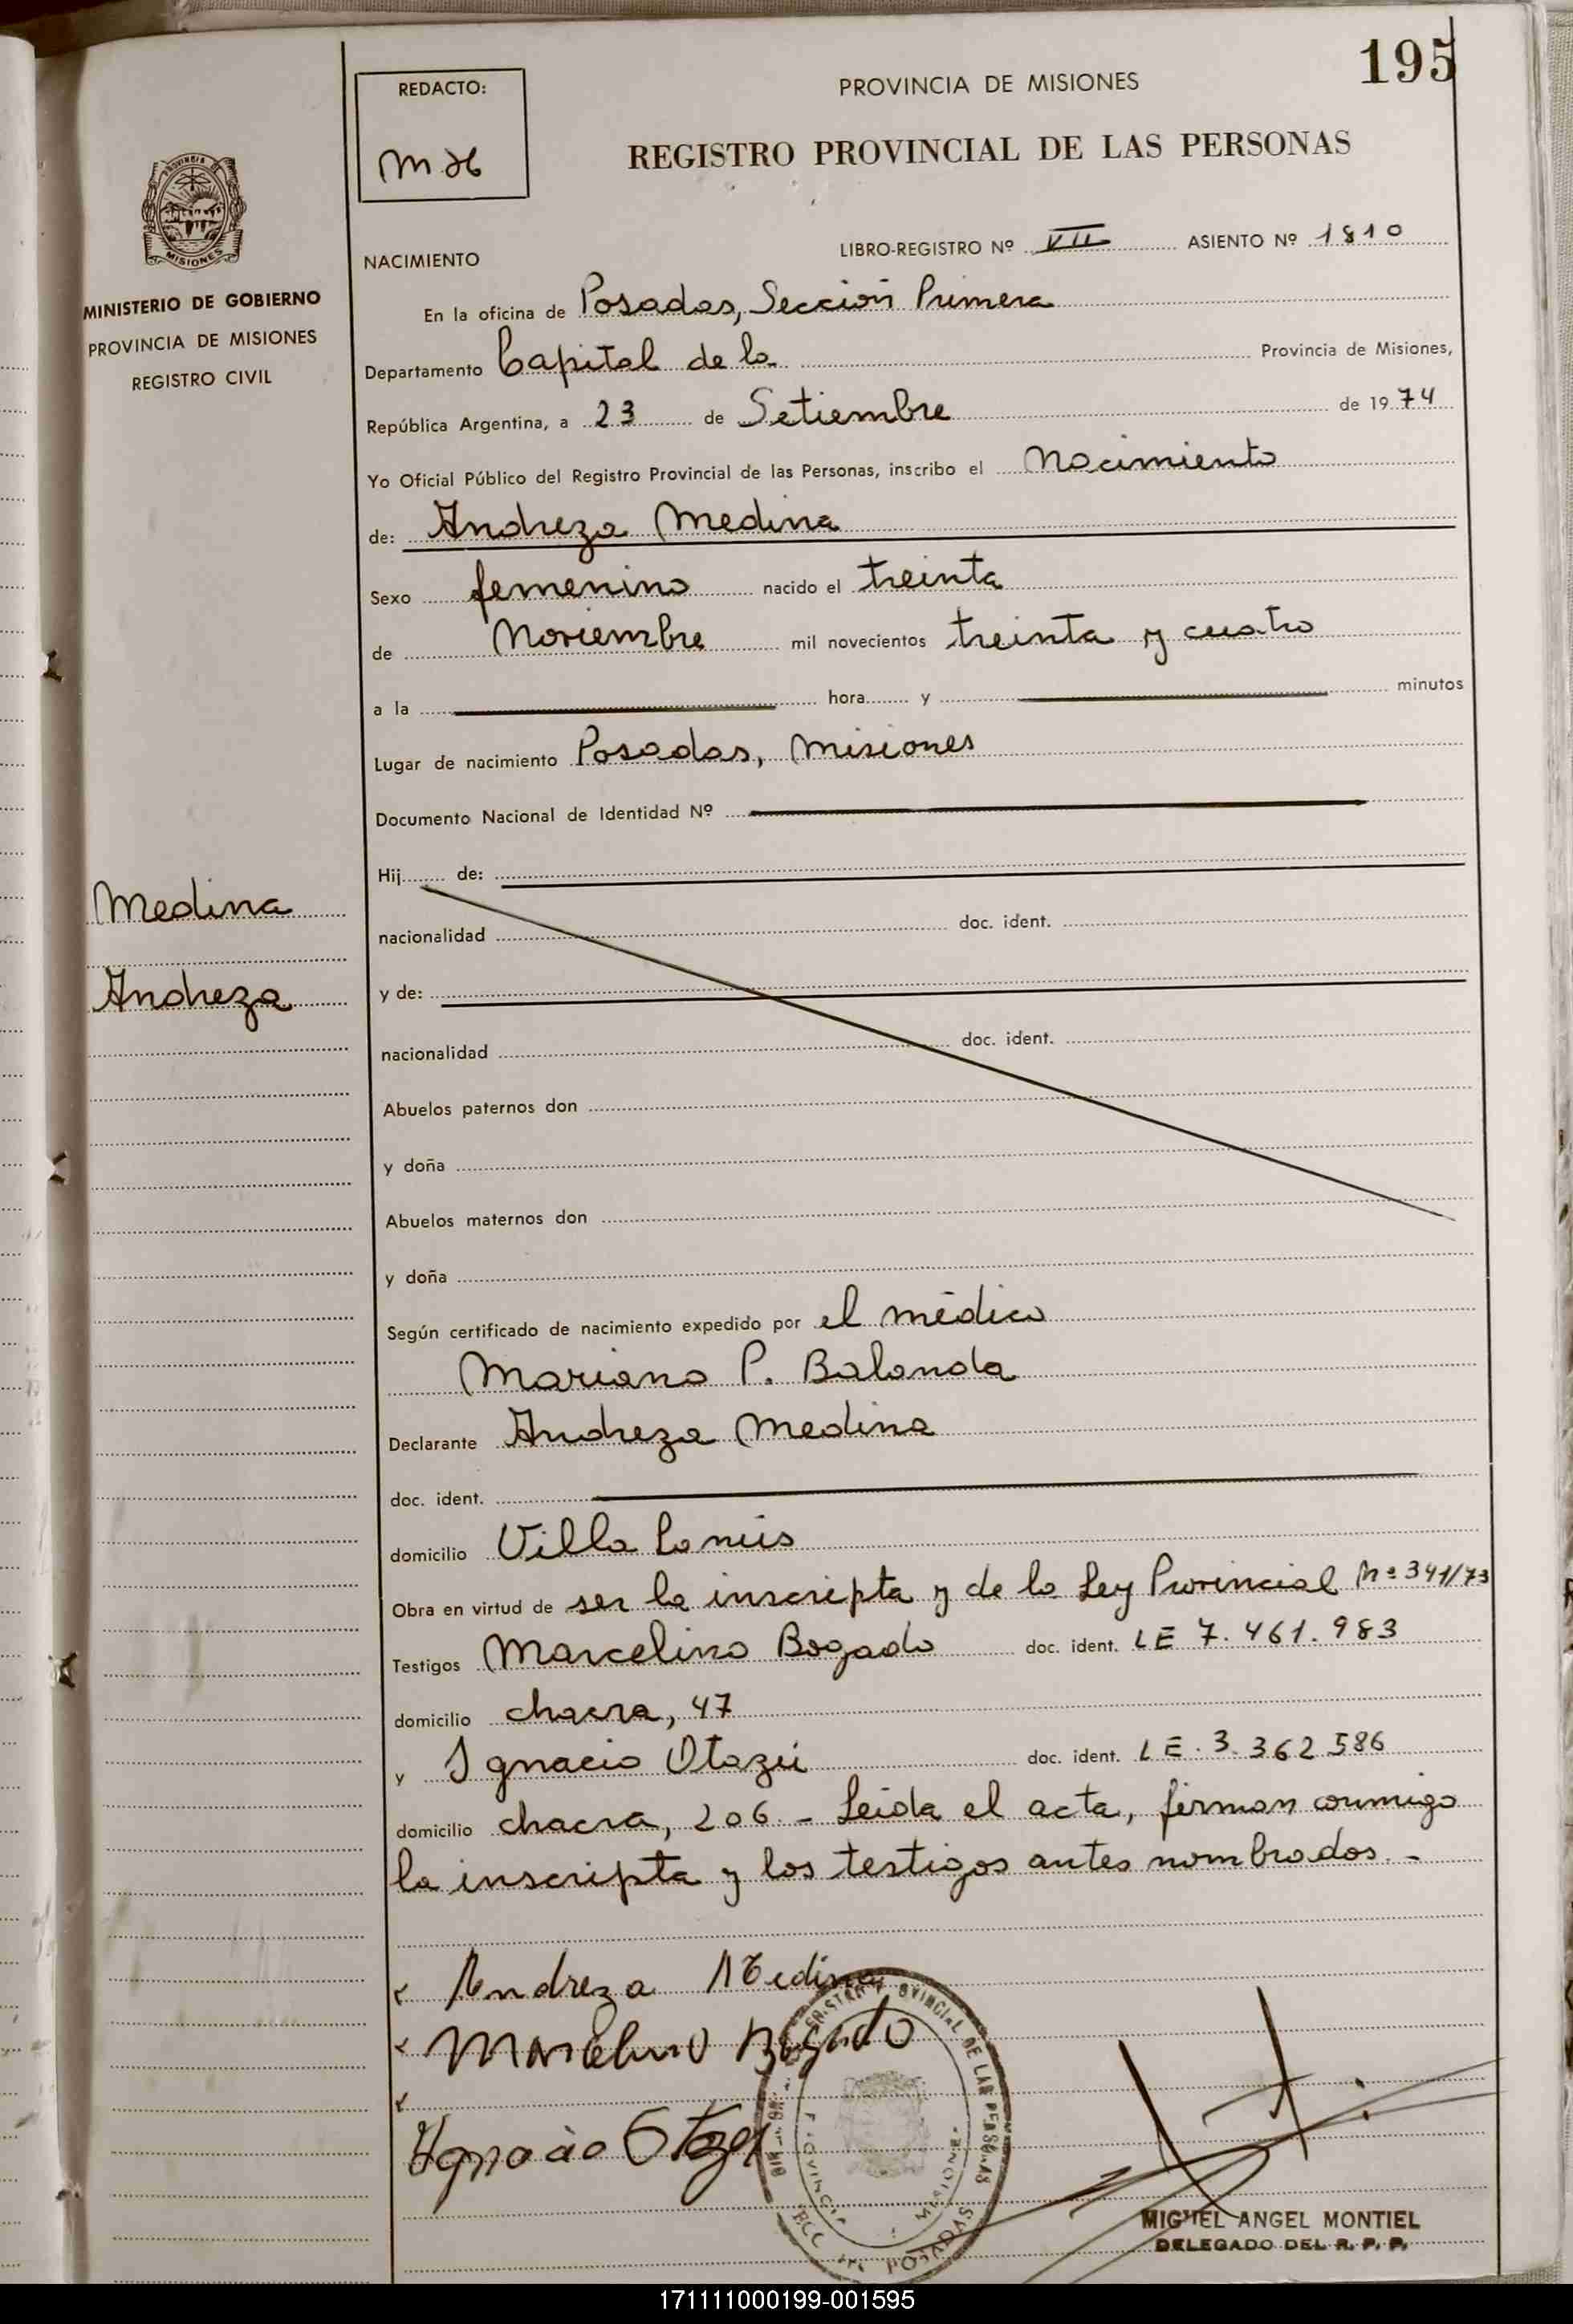 195
REDACTO:
PROVINCIA DE MISIONES
REGISTRO PROVINCIAL DE LAS PERSONAS
MISIONES
MINISTERIO DE GOBIERNO
PROVINCIA DE MISIONES
REGISTRO CIVIL
NACIMIENTO
LIBRO-REGISTRO Nº VII ASIENTO Nº 1810
En la oficina de Posadas, Sección Primera
Departamento Capital de la Provincia de Misiones,
República Argentina, a 23 de Setiembre de 1974
Yo Oficial Público del Registro Provincial de las Personas, inscribo el Nacimiento
de: Andreza Medina
Sexo femenino nacido el treinta
de Noviembre mil novecientos treinta y cuatro
a la hora y minutos
Lugar de nacimiento Posadas, Misiones
Documento Nacional de Identidad Nº
Hij de:
Medina
nacionalidad doc. ident.
Andreza
y de:
nacionalidad doc. ident.
Abuelos paternos don
y doña
Abuelos maternos don
y doña
Según certificado de nacimiento expedido por el médico
Mariano P. Balanda
Declarante Andreza Medina
doc. ident.
domicilio Villa Lanús
Obra en virtud de ser la inscripta y de la Ley Provincial Nº 341/73
Testigos Marcelino Bogado doc. ident. LE 7.461.983
domicilio chacra, 47
y Ignacio Otazú doc. ident. LE. 3.362586
domicilio chacra, 206.- Leída el acta, firman conmigo
la inscripta y los testigos antes nombrados.-
Andreza Medina
Marcelino Bogado
Ignacio Otazu
PROVINCIAL DE LAS PERSONAS
MISIONES
POSADAS
MIGUEL ANGEL MONTIEL
DELEGADO DEL R. P. P.
171111000199-001595